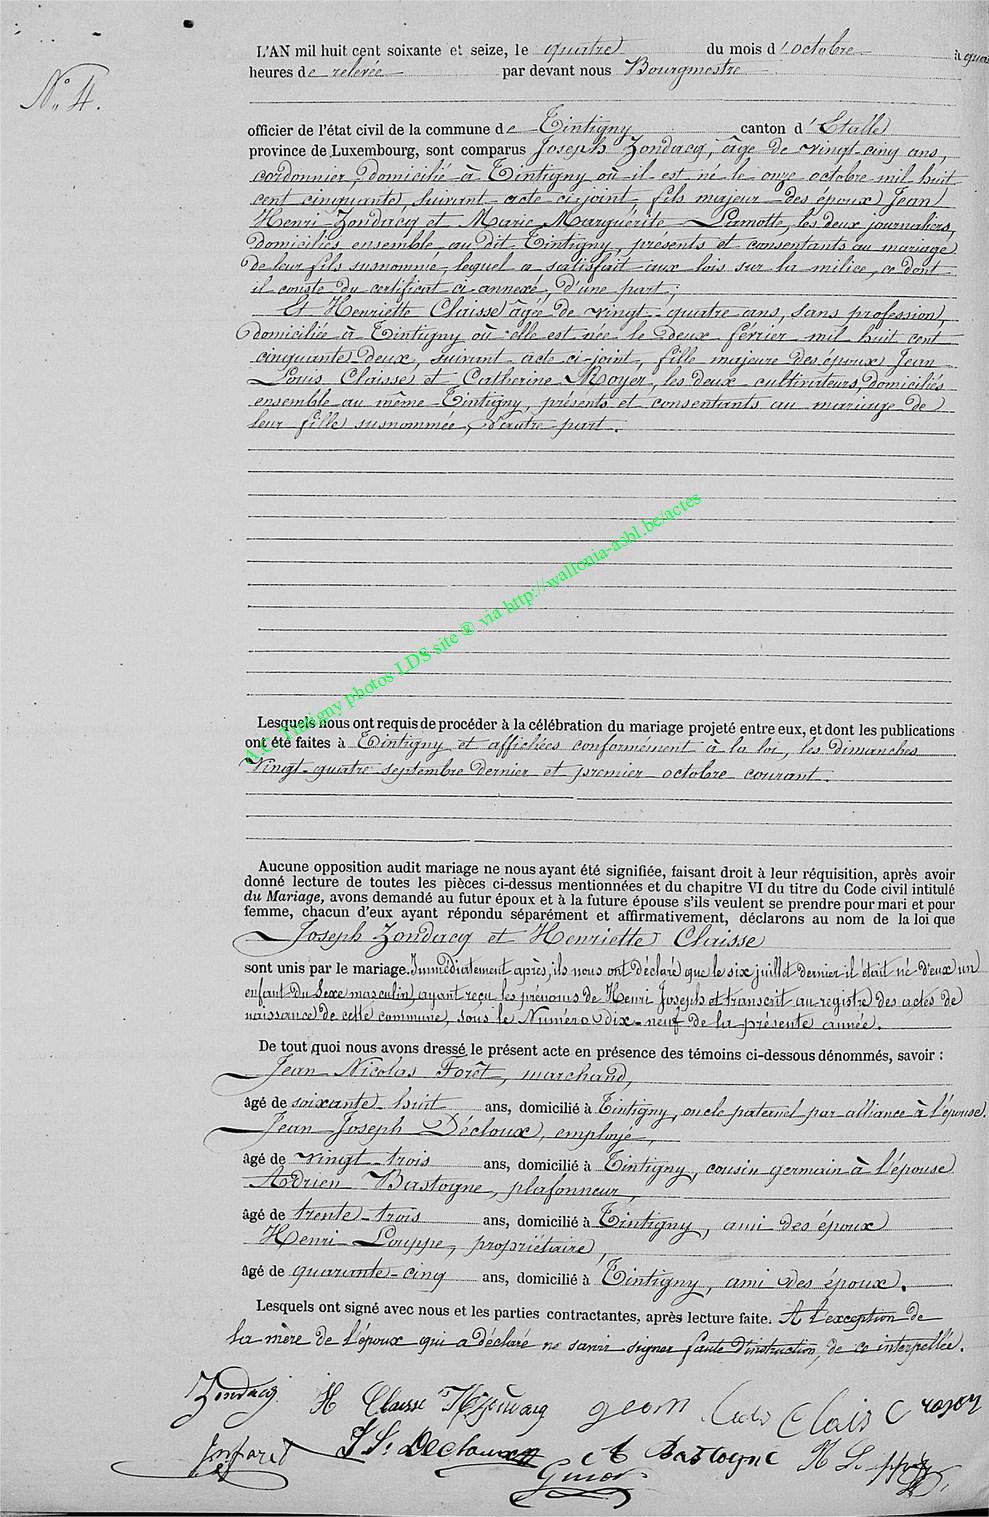 N° 4.
L'AN mil huit cent soixante et seize, le quatre du mois d'octobre à
heures de relevée par devant nous Bourgmestre
officier de l'état civil de la commune de Tintigny canton d'Etalle
province de Luxembourg, sont comparus Joseph Zondacq, âgé de vingt-cinq ans,
cordonnier, domicilié à Tintigny où il est né le onze octobre mil huit
cent cinquante, suivant acte ci-joint, fils majeur des époux Jean
Henri Zondacq et Marie Marguérite Lamotte, les deux journaliers,
domiciliés ensemble au dit Tintigny, présents et consentants au mariage
de leur fils susnommé, lequel a satisfait aux lois sur la milice, ce dont
il conste du certificat ci-annexé, d'une part;
Et Henriette Claisse âgée de vingt-quatre ans, sans profession,
domiciliée à Tintigny où elle est née le deux février mil huit cent
cinquante deux, suivant acte ci-joint, fille majeure des époux Jean
Louis Claisse et Catherine Royer, les deux cultivateurs, domiciliés
ensemble au même Tintigny, présents et consentants au mariage de
leur fille susnommée, d'autre part.
A.C. Tintigny photos LDS site ® via http://wallonia-asbl.be/actes
Lesquels nous ont requis de procéder à la célébration du mariage projeté entre eux, et dont les publications
ont été faites à Tintigny et affichées conformément à la loi, les dimanches
vingt-quatre septembre dernier et premier octobre courant.
Aucune opposition audit mariage ne nous ayant été signifiée, faisant droit à leur réquisition, après avoir
donné lecture de toutes les pièces ci-dessus mentionnées et du chapitre VI du titre du Code civil intitulé
du Mariage, avons demandé au futur époux et à la future épouse s'ils veulent se prendre pour mari et pour
femme, chacun d'eux ayant répondu séparément et affirmativement, déclarons au nom de la loi que
Joseph Zondacq et Henriette Claisse
sont unis par le mariage. Immédiatement après, ils nous ont déclaré que le six juillet dernier il était né d'eux un
enfant du sexe masculin, ayant reçu les prénoms de Henri Joseph et transcrit au registre des actes de
naissance de cette commune, sous le Numéro dix-neuf de la présente année.
De tout quoi nous avons dressé le présent acte en présence des témoins ci-dessous dénommés, savoir :
Jean Nicolas Forêt, marchand,
âgé de soixante huit ans, domicilié à Tintigny, oncle paternel par alliance à l'épouse.
Jean Joseph Décloux, employé,
âgé de vingt-trois ans, domicilié à Tintigny, cousin germain à l'épouse
Adrien Bastogne, plafonneur,
âgé de trente-trois ans, domicilié à Tintigny, ami des époux
Henri Louppe, propriétaire,
âgé de quarante-cinq ans, domicilié à Tintigny, ami des époux.
Lesquels ont signé avec nous et les parties contractantes, après lecture faite. A l'exception de
la mère de l'époux qui a déclaré ne savoir signer faute d'instruction, de ce interpellée.
Zondacq H Claisse
Bastogne